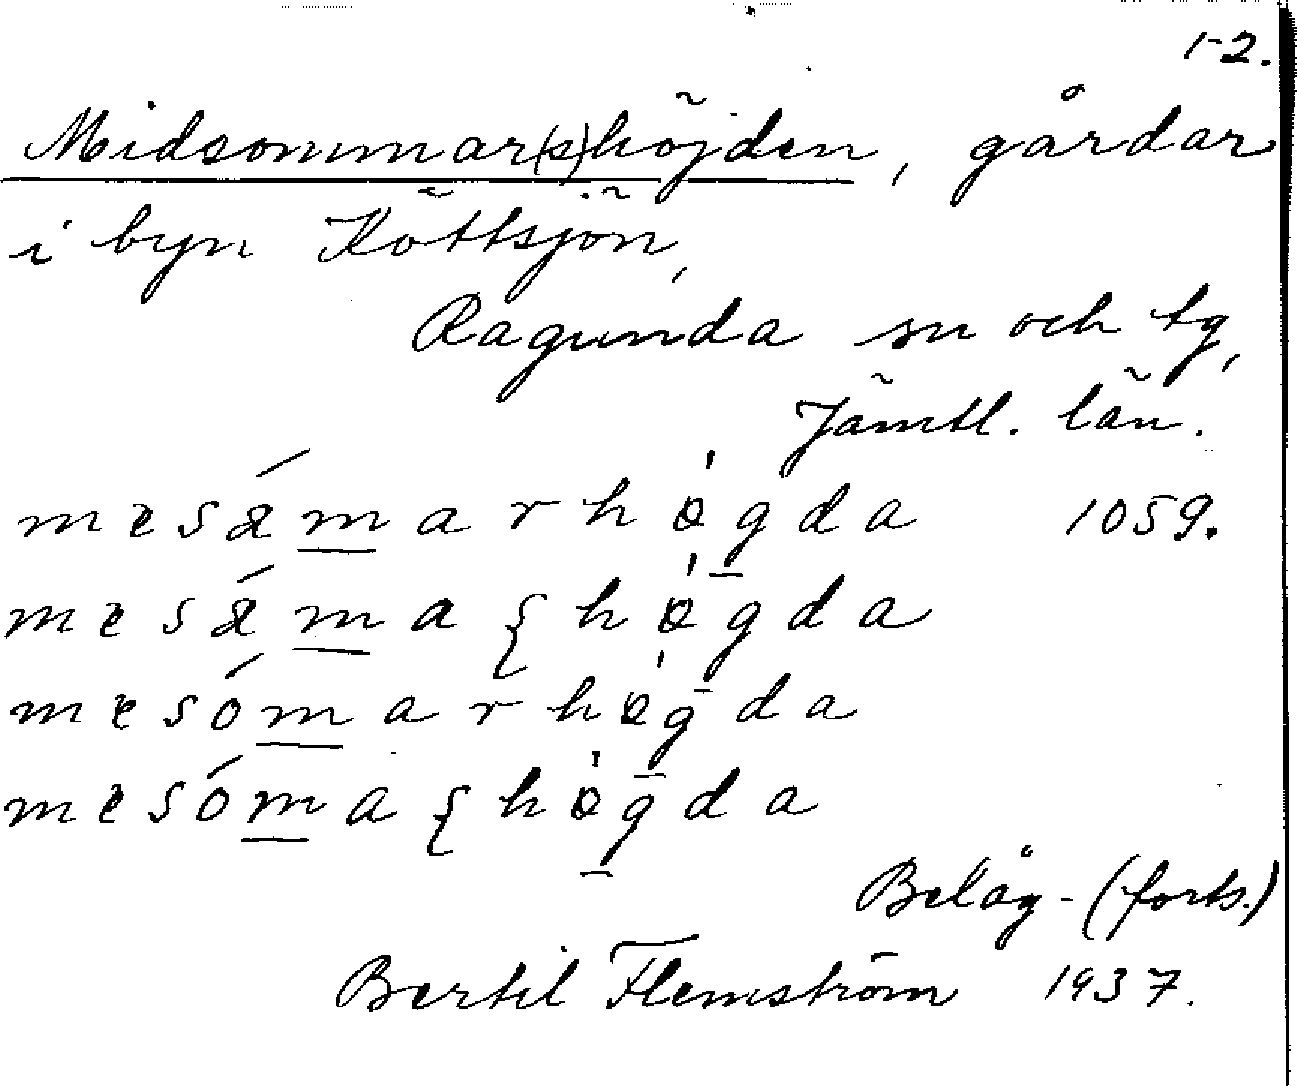 1-2.
Midsommar(s)höjden, gårdar
i byn Köttsjön,
Ragunda sn och tg,
Jämtl. län.
mesåmarhøgda 1059.
mesåmaʂhøgda
mesómarhøgda
mesómaʂhøgda
Beläg-(forts.)
Bertil Flemström 1937.